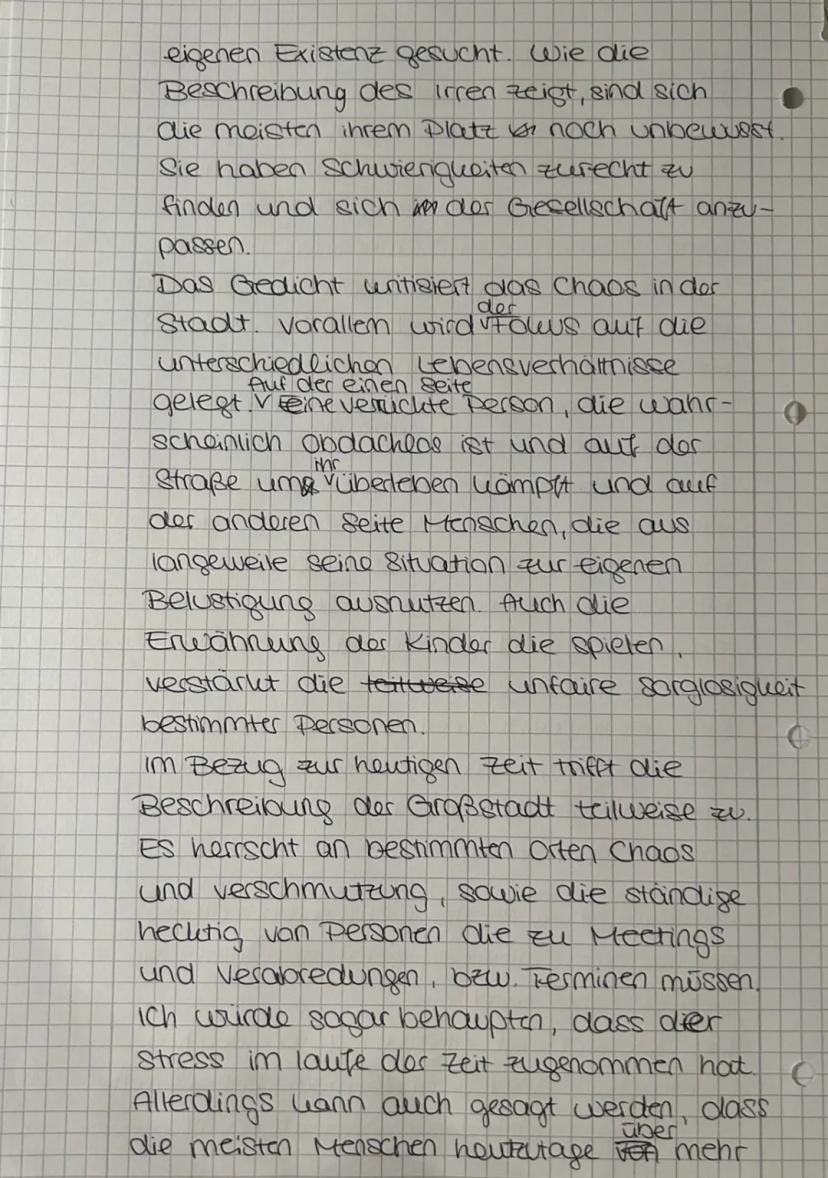 eigenen Existenz gesucht. Wie die
Beschreibung des Irren zeigt, sind sich
die meisten ihrem Platz noch unbewusst.
Sie haben Schwierigkeiten zurecht zu
finden und sich der Gesellschaft anzu-
passen.
Das Gedicht kritisiert das Chaos in der
Stadt. Vorallem wird der Fokus auf die
unterschiedlichen Lebensverhältnisse
gelegt. Auf der einen Seite eine verrückte Person, die wahr-
scheinlich obdachlos ist und auf der
Straße um ihr überleben kämpft und auf
der anderen Seite Menschen, die aus
langeweile seine Situation zur eigenen
Belustigung ausnutzen. Auch die
Erwähnung der Kinder die spielen,
verstärkt die teilweise unfaire sorglosigkeit
bestimmter Personen.
Im Bezug zur heutigen Zeit trifft die
Beschreibung der Großstadt teilweise zu.
Es herrscht an bestimmten Orten Chaos
und verschmutzung, sowie die ständige
hecktig von Personen die zu Meetings
und Verabredungen, bzw. Terminen müssen.
Ich würde sogar behaupten, dass der
stress im laufe der Zeit zugenommen hat.
Allerdings kann auch gesagt werden, dass
die meisten Menschen heutzutage über mehr